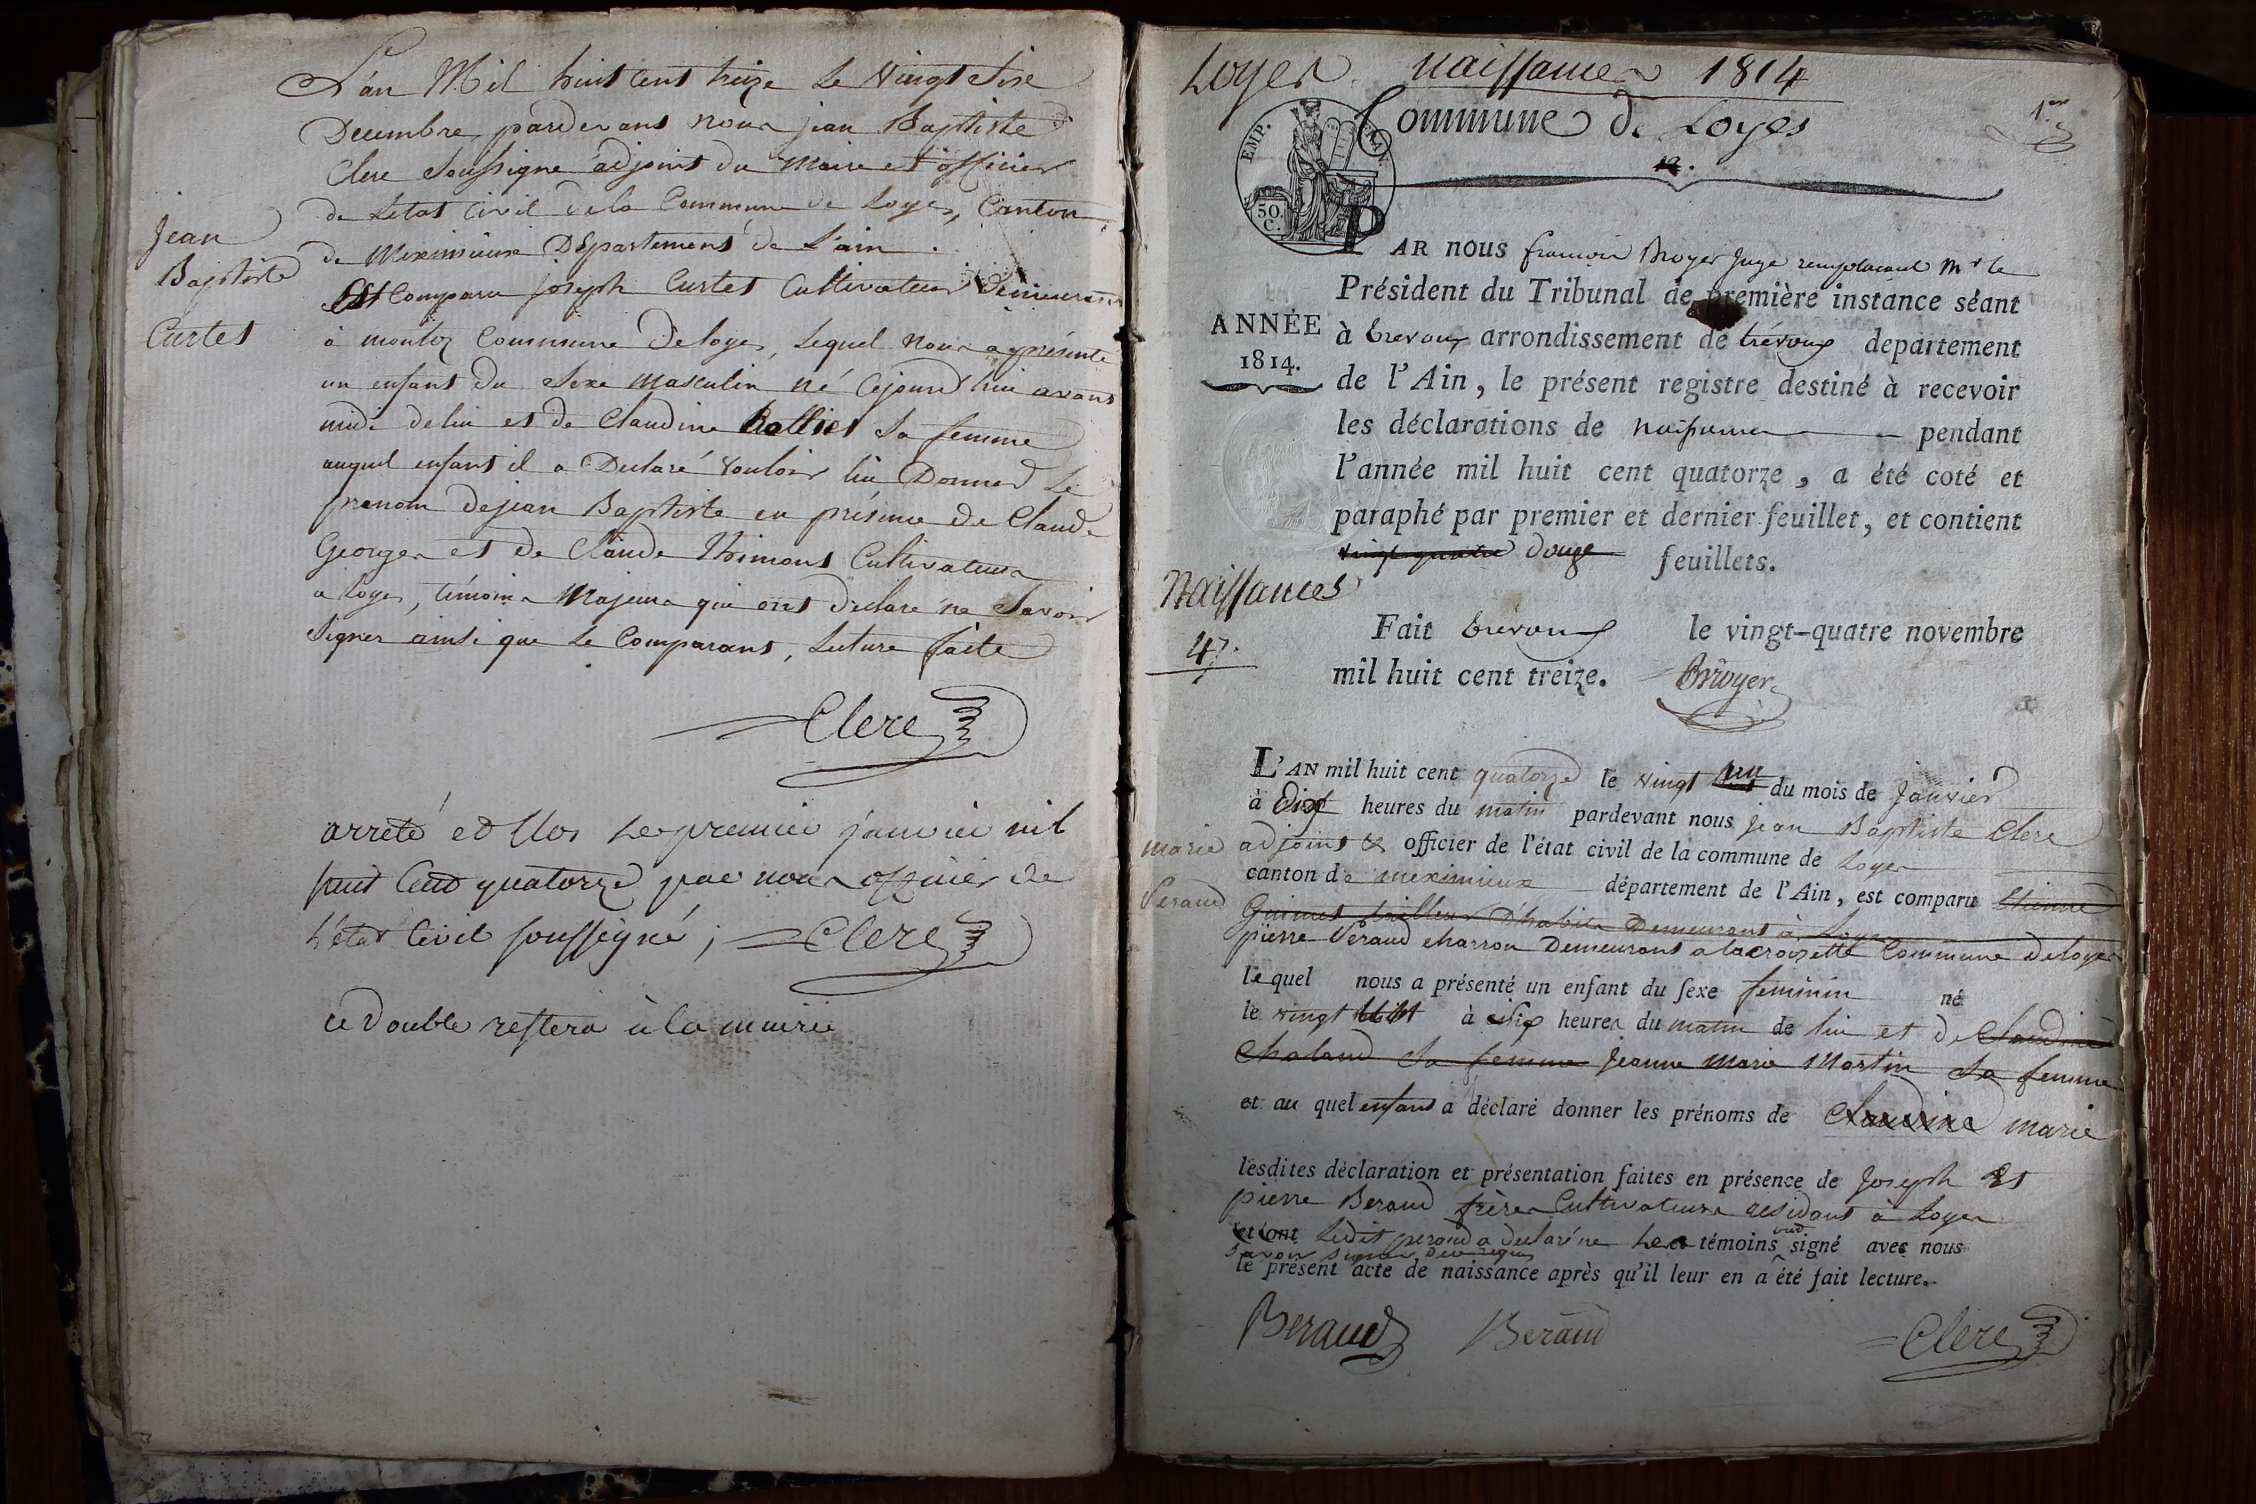 L'an Mil huit cent treize Le vingt Sixe
Decembre, pardevans nous jean Baptiste
Clere Soussigne adjoint du Maire et officier
de Letat Civil de la Commune de Loyes, Canton
de Meximieux Département de L'ain.
Est Comparu joseph Curtet Cultivateur Demeurant
à montoz Commune de loyes, Lequel nous a présenté
un enfant du Sexe Masculin né Cejourd'hui avant
midi de lui et de Claudine Sa femme
auquel enfant il a Declaré vouloir lui Donner Le
prenom de jean Baptiste en présence de Claude
George et de Claude Cultivateurs
a loyes, témoins Majeurs qui ont declaré ne Savoir
Signer ainsi que Le Comparant, Lecture faite
Clere
Jean
Baptiste
Curtet
arreté et Clos Le premier janvier mil
huit Cent quatorze par nous officier de
L'état Civil soussigné; Clere
ce double restera à la mairie
Loyes. Naissances 1814
Commune de Loyes
1.er
EMP. FRAN.
50. C.
12.
PAR nous françois Broyer Juge remplacant Mr le
Président du Tribunal de première instance séant
à trevoux arrondissement de trévoux departement
de l'Ain, le présent registre destiné à recevoir
les déclarations de naissances pendant
l'année mil huit cent quatorze, a été coté et
paraphé par premier et dernier feuillet, et contient
vingt quatre douze feuillets.
ANNÉE
1814.
Naissances
47.
Fait trévoux le vingt-quatre novembre
mil huit cent treize. Broyer
L'AN mil huit cent quatorze le vingt un du mois de Janvier
à Dix heures du matin pardevant nous jean Baptiste Clere
adjoint & officier de l'état civil de la commune de Loyes
canton de meximieux département de l'Ain, est comparu Etienne
Guinet tailleur d'habits Demeurant à Loyes
pierre Péraud charron Demeurant a lacroizette Commune de loyes
marie
Peraud
lequel nous a présenté un enfant du sexe feminin né
le vingt à six heures du matin de lui et de Claudine
Chaland Sa femme Jeanne Marie Martin Sa femme
et au quel enfant a déclaré donner les prénoms de Claudine marie
lesdites déclaration et présentation faites en présence de Joseph Et
pierre Beraud frères Cultivateurs residant à Loyes
et ont Ledit peraud a declaré ne Les témoins ont signé avec nous
Savoir signer de ce requis
le présent acte de naissance après qu'il leur en a été fait lecture.
Beraud Beraud Clere